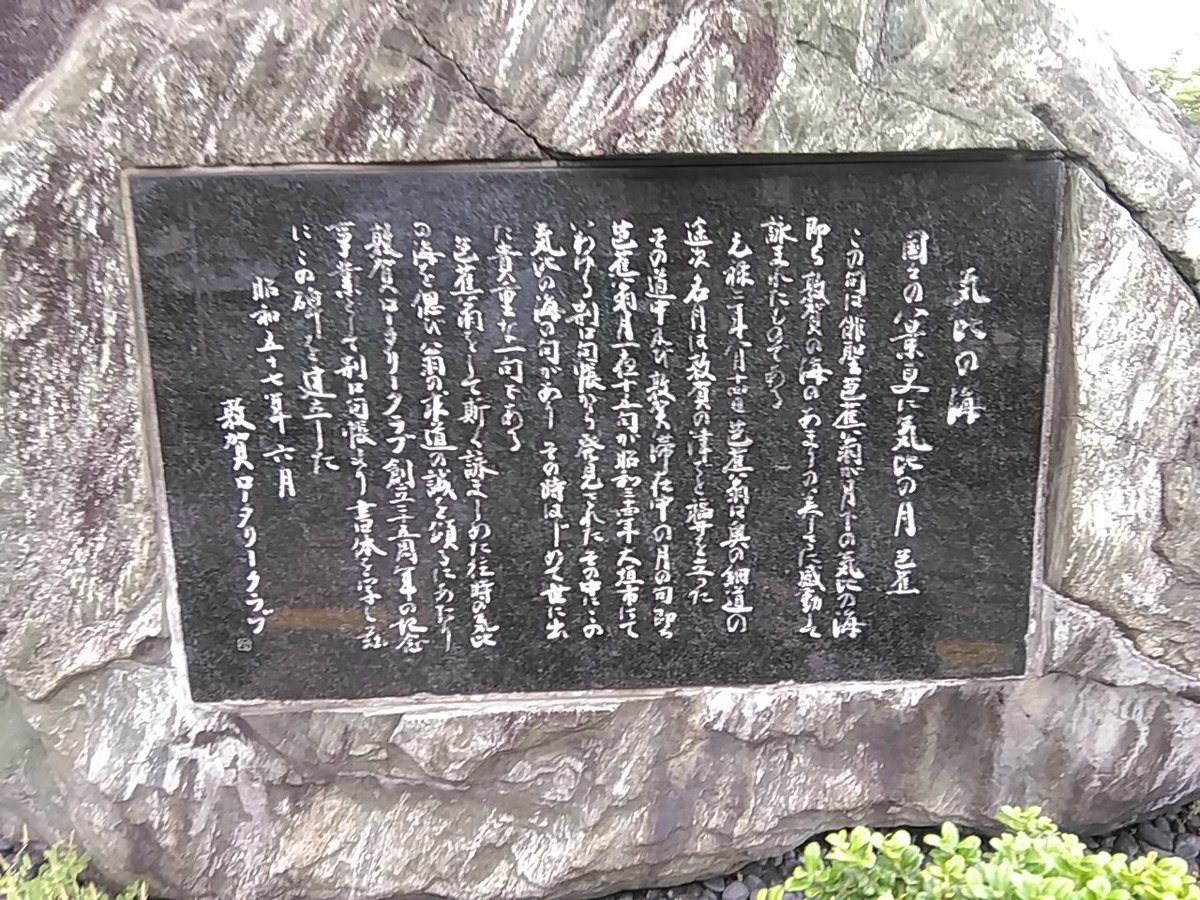 気比の海
国々の八景更に気比の月 芭蕉
この句は俳聖芭蕉翁が月下の気比の海
即ち敦賀の海のあまりの美しさに感動して
詠まれたものである
元禄二年八月十四日芭蕉翁は奥の細道の
途次名月は敦賀の津でと福井を立った
その道中及び敦賀滞在中の月の句即ち
芭蕉翁月一夜十五句が昭和三四年大垣市にて
いわゆる荊口句帳から発見されたその中にこの
気比の海の句があり その時はじめて世に出
た貴重な一句である
芭蕉翁をして斯く詠ましめた往時の気比
の海を偲び翁の求道の誠を頌るにあたり
敦賀ロータリークラブ創立二五周年の記念
事業として荊口句帳より書体を写し茲
にこの碑を建立した
昭和五十七年六月
敦賀ロータリークラブ